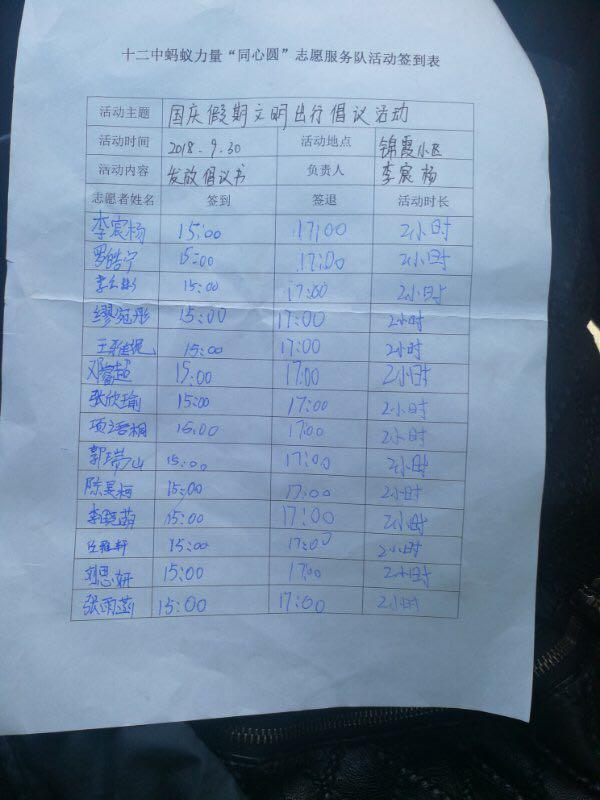 十二中蚂蚁力量“同心圆”志愿服务队活动签到表
活动主题 国庆假期文明出行倡议活动
活动时间 2018.9.30 活动地点 锦霞小区
活动内容 发放倡议书 负责人 李宸杨
志愿者姓名 签到 签退 活动时长
李宸杨 15:00 17:00 2小时
罗皓宁 15:00 17:00 2小时
15:00 17:00 2小时
缪宛彤 15:00 17:00 2小时
15:00 17:00 2小时
邓睿超 15:00 17:00 2小时
张欣瑜 15:00 17:00 2小时
15:00 17:00 2小时
郭瑞山 15:00 17:00 2小时
陈昊桓 15:00 17:00 2小时
李晓萌 15:00 17:00 2小时
任雅轩 15:00 17:00 2小时
刘思妍 15:00 17:00 2小时
张雨菡 15:00 17:00 2小时